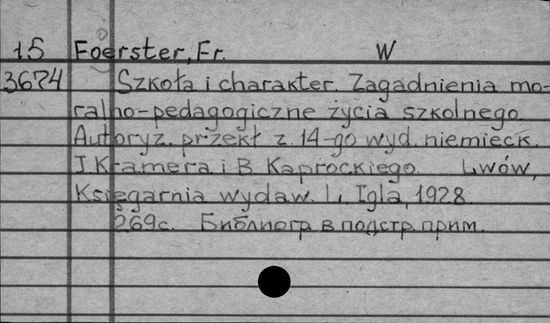 15 Foerster, Fr. W
3674 Szkoła i charakter. Zagadnienia mo-
ralno-pedagogiczne życia szkolnego.
Autoryz. przekł z 14-go wyd. niemieck.
J Kramera i B Kaprockiego. Lwów,
Księgarnia wydaw. L. Igla, 1928
269c. Библиогр. в подстр. прим.